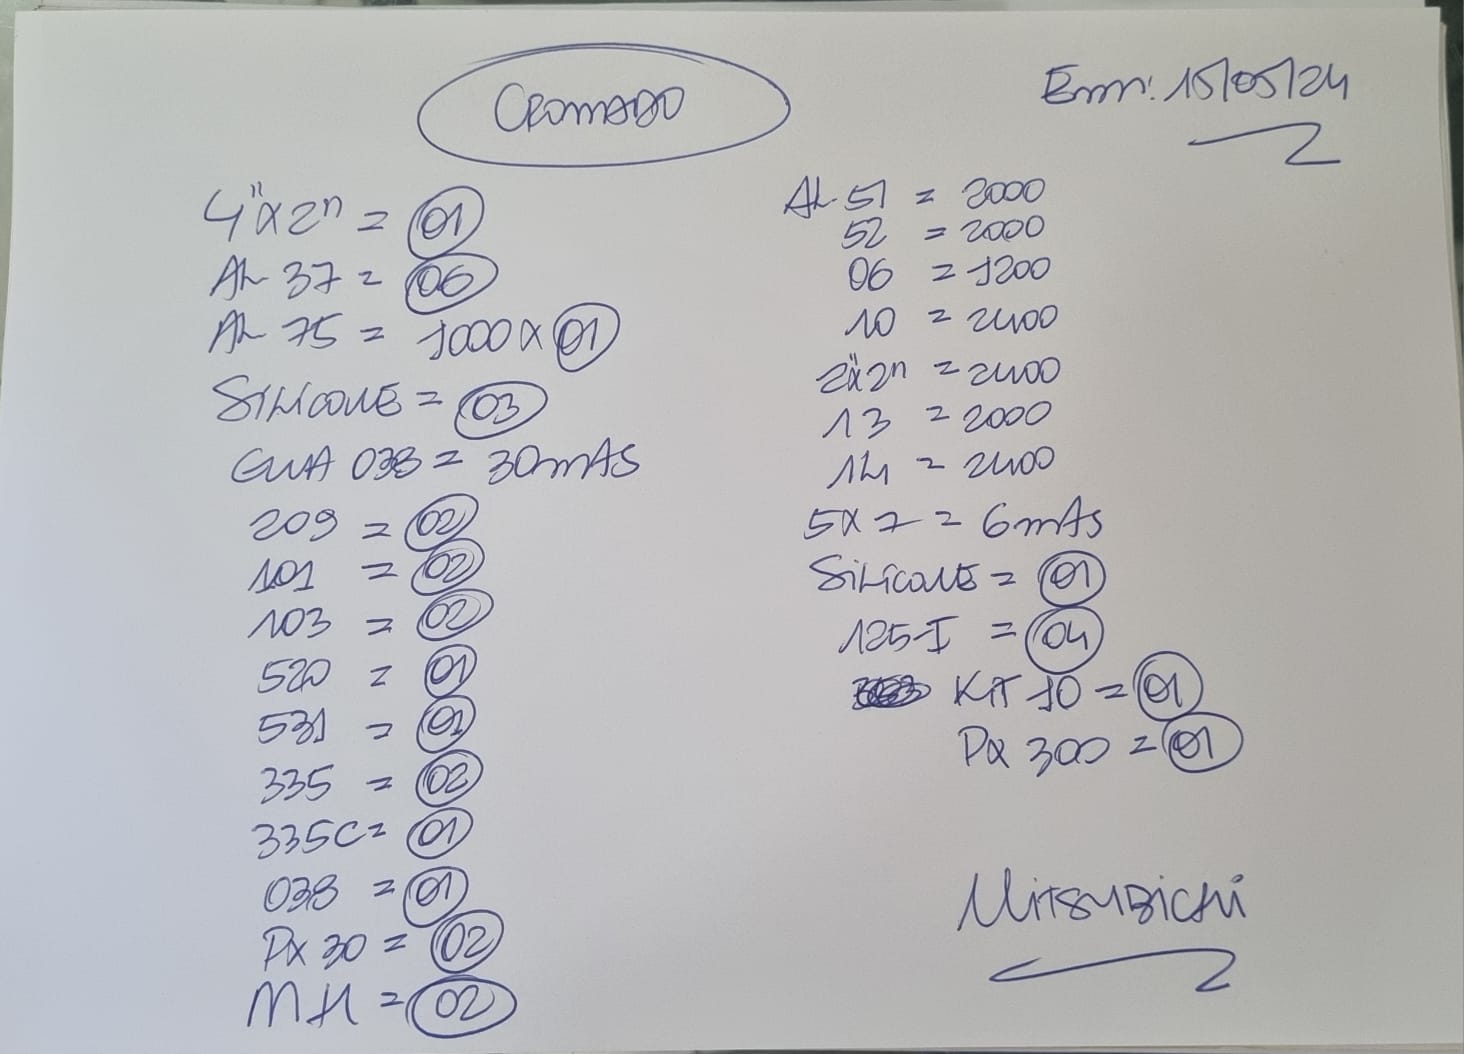 CROMADO
Em: 15/05/24
4"x2" = 01
AL 37 = 06
AL 75 = 1000 x 01
SILICONE = 03
GUA 038 = 30mAS
209 = 02
101 = 02
103 = 02
520 = 01
531 = 01
335 = 02
335C = 01
038 = 01
Px 30 = 02
MH = 02
AL 51 = 2000
52 = 2000
06 = 1200
10 = 2400
2"x2" = 2400
13 = 2000
14 = 2400
5x7 = 6mAS
SiLiCONE = 01
125-I = 04
KiT 10 = 01
Px 300 = 01
MiTSUBiCHi